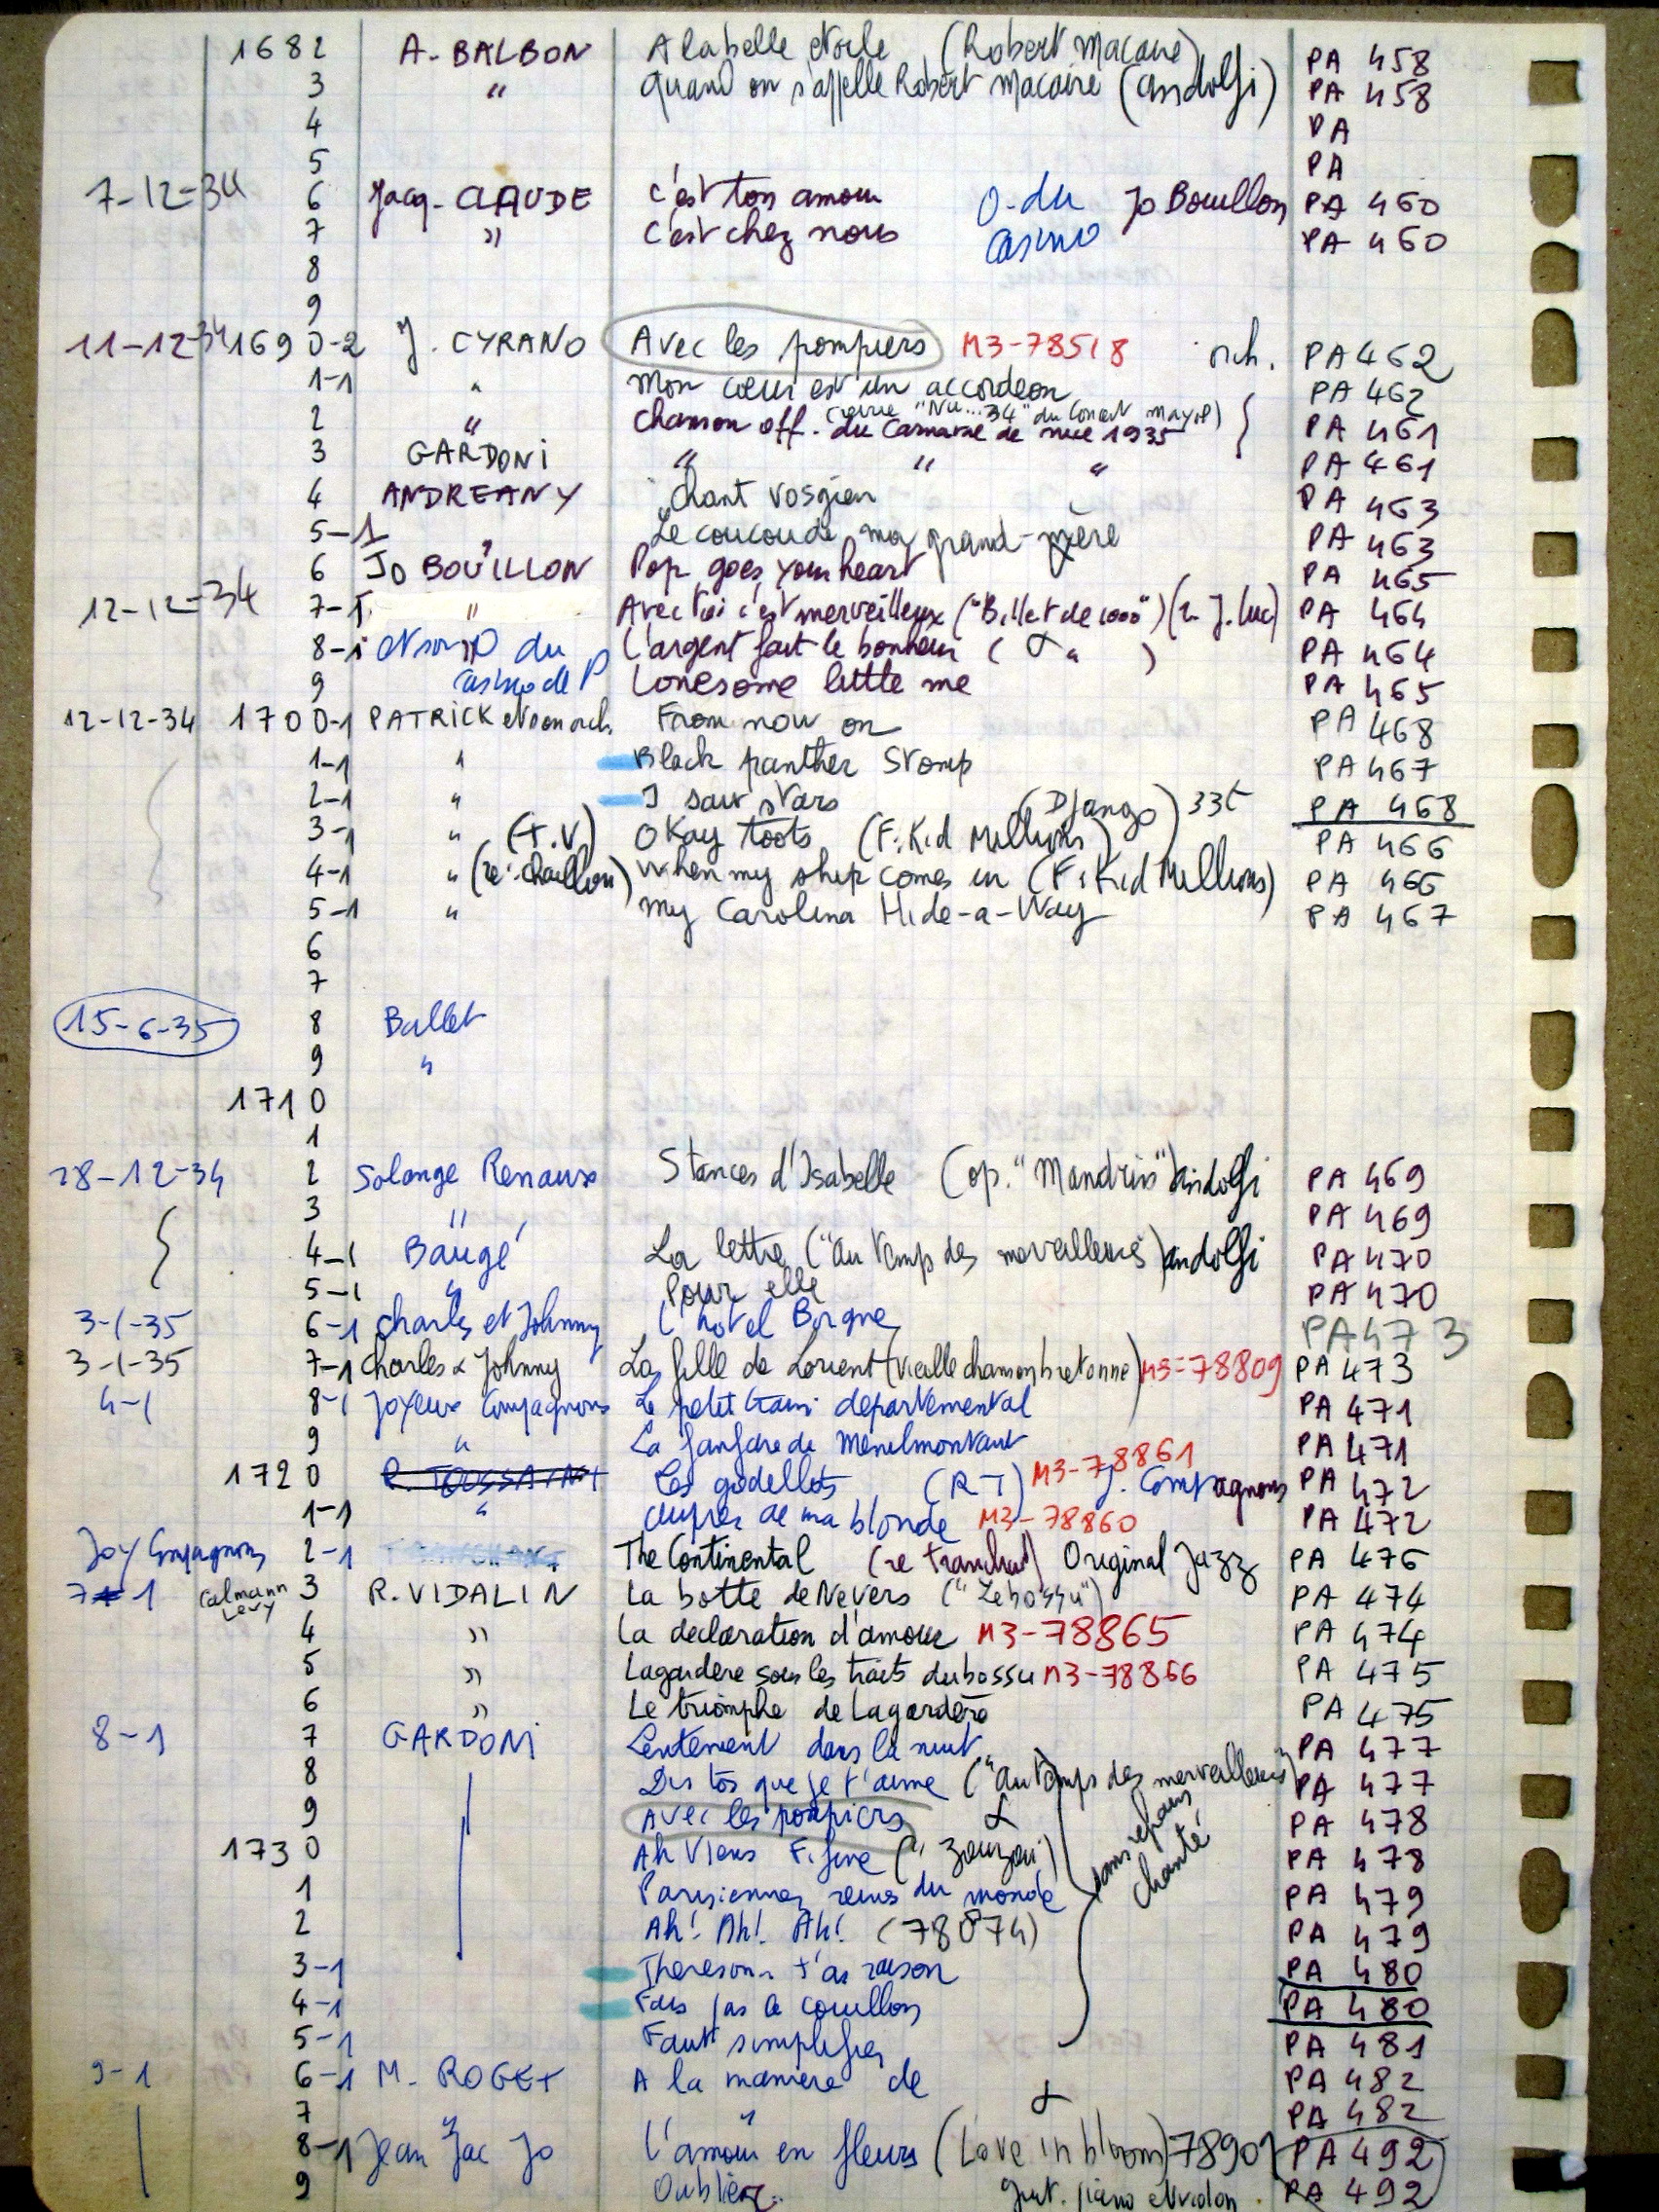 1682 A. BALBON A la belle etoile (Robert Macaire) PA 458
3 " Quand on s'appelle Robert Macaire (andolfi) PA 458
4 PA
5 PA
7-12-34 6 Jacq. CLAUDE C'est ton amour O. du Jo Bouillon PA 460
7 " C'est chez nous Casino PA 460
8
9
11-12-34 1690-2 J. CYRANO Avec les pompiers M3-78518 orch. PA 462
1-1 " Mon cœur est un accordeon PA 462
2 " (revue "Nu...34" du Concert Mayol) PA 461
Chanson off. du Carnaval de nice 1935
3 GARDONI " " " PA 461
4 ANDREANY Chant vosgien PA 463
5-1 " Le coucou de ma grand-mère PA 463
6 JO BOUILLON Pop goes your heart PA 465
12-12-34 7-1 " Avec toi c'est merveilleux ("Billet de 1000") (r. J. Luc) PA 464
8-1 et son O du L'argent fait le bonheur ( " ) PA 464
9 casino de P Lonesome little me PA 465
12-12-34 1700-1 PATRICK et son orch. From now on PA 468
1-1 " Black panther Stomp PA 467
2-1 " I saw stars (Django) 33t PA 468
3-1 " (T.V) Okay toots (F. Kid Millions) PA 466
4-1 " (re: chaillou) When my ship comes in (F. Kid Millions) PA 466
5-1 " My Carolina Hide-a-Way PA 467
6
7
15-6-35 8 Ballet
9 "
1710
1
28-12-34 2 Solange Renaux Stances d'Isabelle (op. "Mandrin") andolfi PA 469
3 " PA 469
4-1 Baugé La lettre ("Au temps des merveilleuses") andolfi PA 470
5-1 " Pour elle PA 470
3-1-35 6-1 Charles et Johnny L'hotel Borgne PA 473
3-1-35 7-1 Charles & Johnny La fille de Lorient (vieille chanson bretonne) M3-78809 PA 473
4-1 8-1 Joyeux Compagnons Le petit train departemental PA 471
9 " La fanfare de Menilmontant PA 471
1720 R. TOUSSAINT Les godillots (RT) M3-78861 J. Compagnons PA 472
1-1 " Aupres de ma blonde M3-78860 PA 472
Joy Compagnons 2-1 The Continental (re Tranchant) Original Jazz PA 476
7-1 Calmann Levy 3 R. VIDALIN La botte de Nevers ("Le bossu") PA 474
4 " La declaration d'amour M3-78865 PA 474
5 " Lagardere sous les traits du bossu M3-78866 PA 475
6 " Le triomphe de Lagardère PA 475
8-1 7 GARDONI Lentement dans la nuit PA 477
8 Dis toi que je t'aime ("au temps des merveilleuses") PA 477
9 Avec les pompiers PA 478
1730 Ah Viens Fifine (" Zouzou) sans refrains chanté PA 478
1 Parisiennes reines du monde PA 479
2 Ah! Ah! Ah! (78874) PA 479
3-1 Theresou t'as raison PA 480
4-1 Fais pas le couillon PA 480
5-1 Faut simplifier PA 481
9-1 6-1 M. ROGET A la maniere de PA 482
7 " " PA 482
8-1 Jean Jac Jo L'amour en fleurs (Love in bloom) 78901 PA 492
9 Oublier guit. piano et violon PA 492